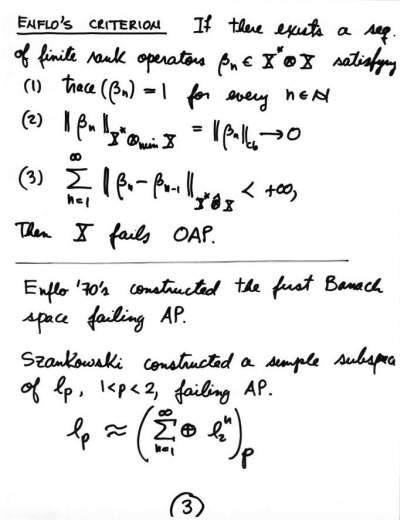 ENFLO'S CRITERION If there exists a seq.
of finite rank operators βₙ ∈ X* ⊗ X satisfying
(1) trace(βₙ) = 1 for every n ∈ ℕ
(2) ‖βₙ‖_{X* ⊗min X} = ‖βₙ‖_{cb} → 0
(3) ∑_{n=1}^{∞} ‖βₙ − βₙ₋₁‖_{X* ⊗̂ X} < +∞,
Then X fails OAP.
Enflo '70's constructed the first Banach
space failing AP.
Szankowski constructed a simple subspa
of lp, 1<p<2, failing AP.
lp ≈ (∑_{n=1}^{∞} ⊕ l₂ⁿ)_p
3